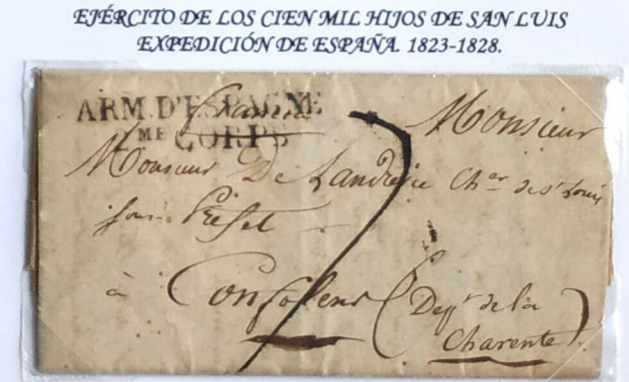 EJÉRCITO DE LOS CIEN MIL HIJOS DE SAN LUIS
EXPEDICIÓN DE ESPAÑA. 1823-1828.
ARM. D'ESPAGNE
ME CORPS
Monsieur
Monsieur De Landrevie Cher de St Louis
sous Préfet
à Confolens (Dept de la
Charente)